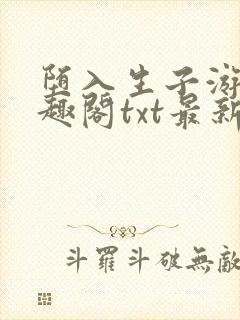 堕入生子游
趣阁txt最新
斗羅斗破無敵